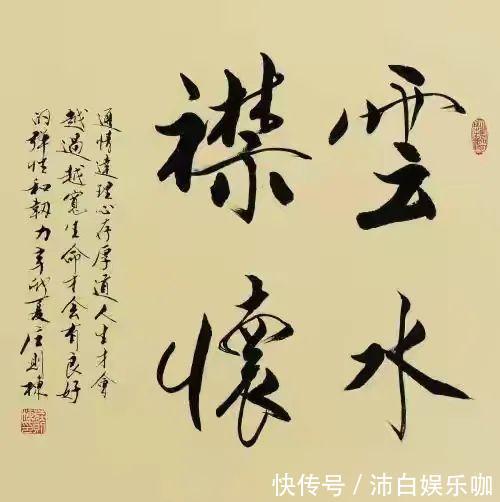 雲水
襟懷
通情達理心存厚道人生才會
越過越寬生命才会有良好
的彈性和韌力辛卯夏庄則棟
快传号 / 沛白娱乐咖